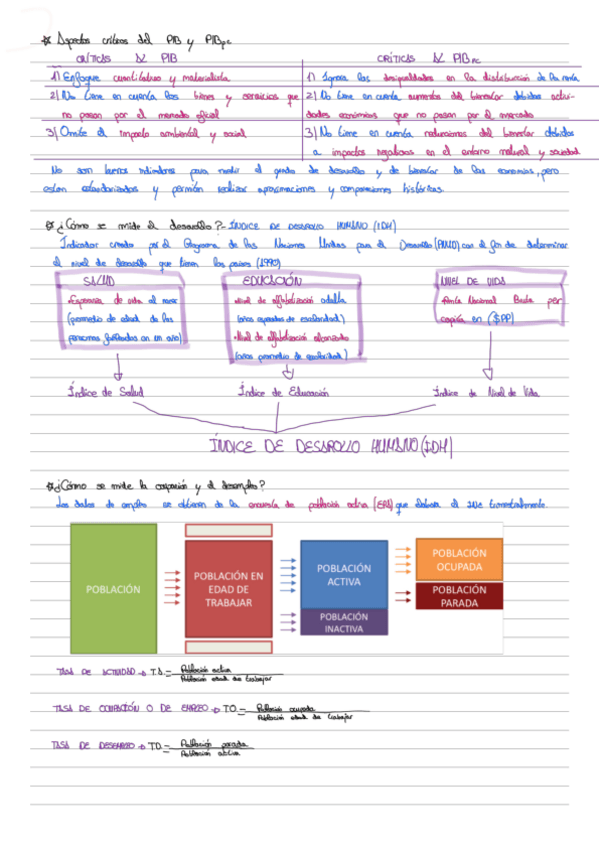 * Aspectos críticos del PIB y PIBpc
CRÍTICAS DE PIB
CRÍTICAS DE PIBpc
1) Enfoque cuantitativo y materialista
1) Ignora las desigualdades en la distribución de la renta
2) No tiene en cuenta los bienes y servicios que
no pasan por el mercado oficial
2) No tiene en cuenta aumentos del bienestar debidos activi-
dades económicas que no pasan por el mercado
3) Omite el impacto ambiental y social
3) No tiene en cuenta reducciones del bienestar debidas
a impactos negativos en el entorno natural y sociedad
No son buenos indicadores para medir el grado de desarrollo y de bienestar de las economías, pero
están estandarizados y permiten realizar aproximaciones y comparaciones históricas.
* ¿Cómo se mide el desarrollo? - ÍNDICE DE DESARROLLO HUMANO (IDH)
Indicador creado por el Programa de las Naciones Unidas para el Desarrollo (PNUD) con el fin de determinar
el nivel de desarrollo que tienen los países (1990)
SALUD
-Esperanza de vida al nacer
(promedio de edad de las
personas fallecidas en un año)
EDUCACIÓN
-Nivel de alfabetización adulta
(años esperados de escolaridad)
-Nivel de alfabetización alcanzado
(años promedio de escolaridad)
NIVEL DE VIDA
-Renta Nacional Bruta per
cápita en ($PP)
Índice de Salud
Índice de Educación
Índice de Nivel de Vida
ÍNDICE DE DESARROLLO HUMANO (IDH)
* ¿Cómo se mide la ocupación y el desempleo?
Los datos de empleo se obtienen de la encuesta de población activa (EPA) que elabora el INE trimestralmente.
POBLACIÓN
POBLACIÓN EN
EDAD DE
TRABAJAR
POBLACIÓN
ACTIVA
POBLACIÓN
INACTIVA
POBLACIÓN
OCUPADA
POBLACIÓN
PARADA
TASA DE ACTIVIDAD → T.A = Población activa
Población edad de trabajar
TASA DE OCUPACIÓN O DE EMPLEO → TO = Población ocupada
Población edad de trabajar
TASA DE DESEMPLEO → TD = Población parada
Población activa